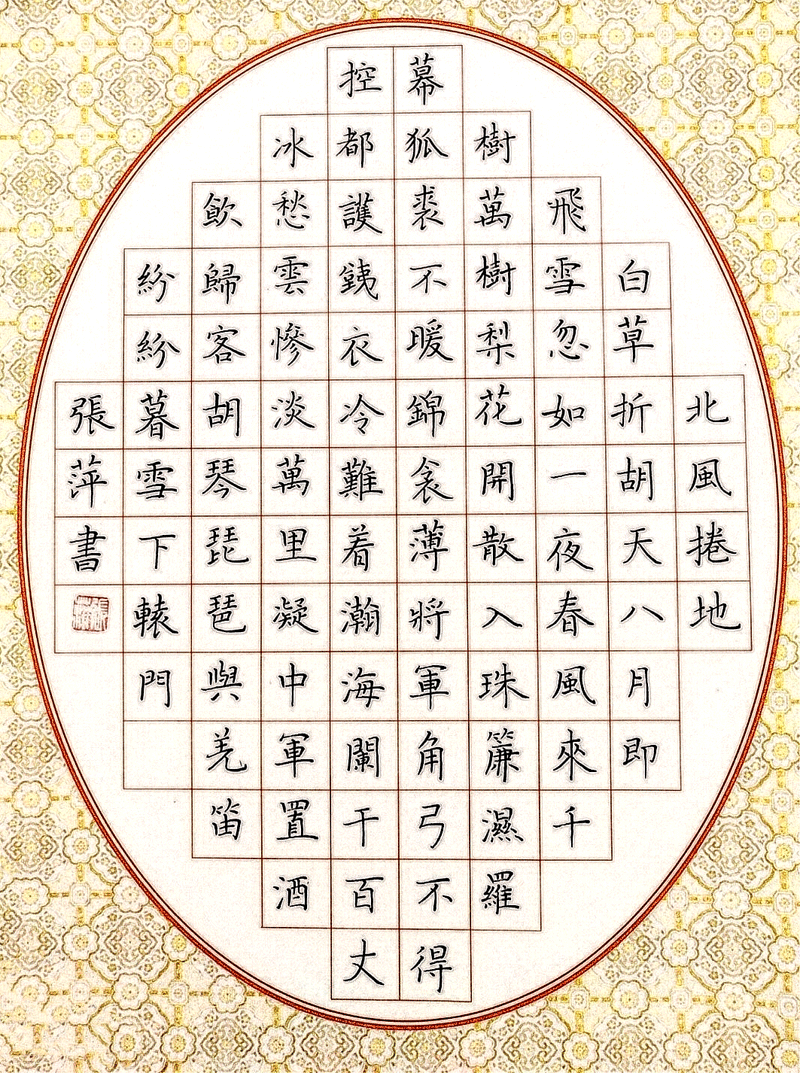 北風捲地
白草折胡天八月即
飛雪忽如一夜春風來千
樹萬樹梨花開散入珠簾濕羅
幕狐裘不暖錦衾薄將軍角弓不得
控都護銕衣冷難着瀚海闌干百丈
冰愁雲慘淡萬里凝中軍置酒
飲歸客胡琴琵琶與羌笛
紛紛暮雪下轅門
張萍書